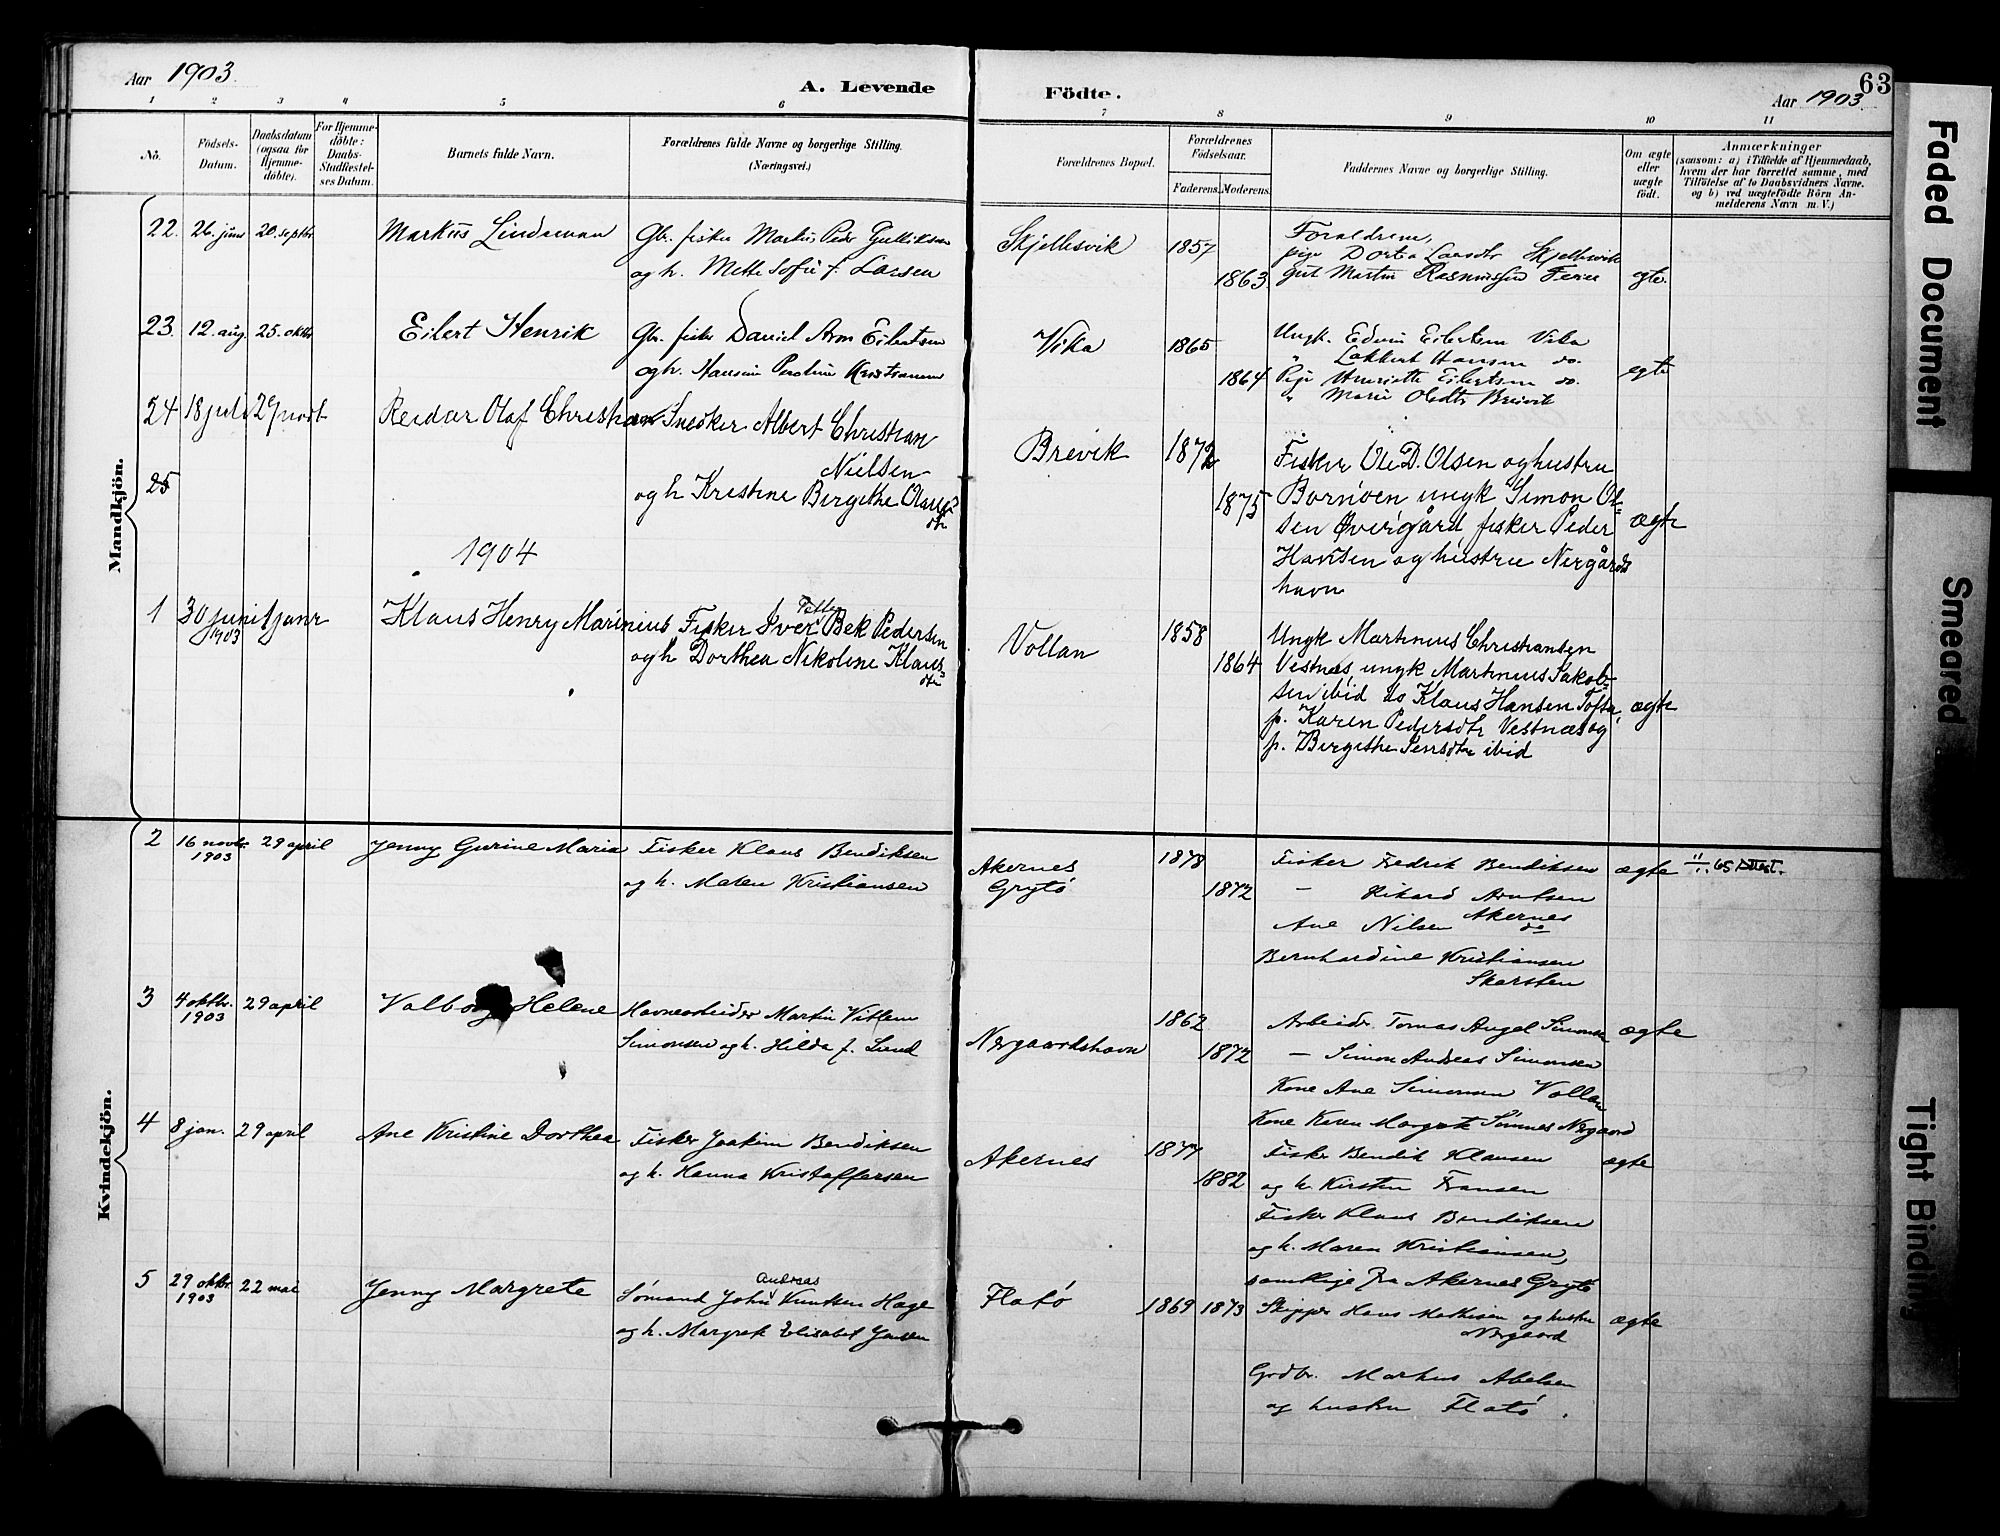 Aar 1903.
A. Levende
Födte.
63
Aar 1903
1 2 3 4 5 6 7 8 9 10 11
No.
Födsels-Datum.
Daabsdatum (ogsaa for Hjemme-döbte).
For Hjemme-döbte: Daabs-Stadfæstel-ses Datum.
Barnets fulde Navn.
Forældrenes fulde Navne og borgerlige Stilling.
(Næringsvei.)
Forældrenes Bopæl.
Forældrenes Födselsaar.
Faderens. Moderens.
Faddernes Navne og borgerlige Stilling.
Om ægte eller uægte født.
Anmærkninger
(saasom: a) i Tilfælde af Hjemmedaab,
hvem der har forrettet samme, med
Tilföielse af to Daabsvidners Navne.
og b) ved uægtefödte Börn An-
melderens Navn m. V.)
Mandkjön.
22. 26. juni 20. septbr Markus Lindeman Gbr. fisker Markus Peder Gulliksen
og h. Mette Sofie f. Larsen
Skjellesvik 1857
1863
Forældrene,
pige Dortea Larsdtr Skjellesvik
gut Martin Rasmussen
egte.
23. 12. aug. 25. oktbr Eilert Henrik Gbr. fisker Daniel Aron Eilertsen
og h. Hansine Peroline
Vika 1865
1864
Ungk. Edvin Eilertsen Vika
" Hansen do.
Pige Henriette Eilertsen do.
" Marie Olsdtr Breivik
egte
24 18 juli 29 novbr Reidar Olaf Christian Snedker Albert Christian
Nielsen
og h Kristine Birgithe Olaus-
dtr
Brevik 1872
1875
Fisker Ole D. Olsen og hustru
Bornöen ungk Simon Ol-
sen Øvergård fisker Peder
Hansen og hustru Nergårds
havn
ægte
25
1904
1 30 juni 1 janr
1903
Klaus Henry Marinius Fisker Iver Petter Bek Pedersen
og h Dorthea Nikoline Klaus-
dtr
Vollan 1858
1864
Ungk Martinius Christiansen
Vestnæs ungk Martinius Jakob-
sen ibid do Klaus Hansen Tofta,
p. Karen Pedersdtr Vestnæs og
p. Birgithe Jensdtr ibid
ægte
Kvindekjön.
2 16 novbr. 29 april
1903
Jenny Gurine Maria Fisker Klaus Bendiksen
og h. Maren Kristiansen
Akernes
Grytö
1878
1872
Fisker Fredrik Bendiksen
— Rikard Arntsen
Akernes
Ane Nilsen do
Bernhardine Kristiansen
Skarsten
ægte
65 Attest.
3 4 oktbr. 29 april
1903
Valborg Helene Havnearbeider Martin Villem
Simonsen og h. Hilda f. Lund
Nergaardshavn 1862
1872
Arbeidr. Tomas Angel Simonsen
— Simon Andreas Simonsen
Kone Ane Simonsen Vollan
Kone Karen Margrete Simnes Nergaard
ægte
4 8 jan. 29 april Ane Kristine Dorthea Fisker Joakim Bendiksen
og h. Hanna Kristoffersen
Akernes 1877
1882
Fisker Bendik Klausen
og h. Kirsten Fransen
Fisker Klaus Bendiksen
og h. Maren Kristiansen,
samtlige fra Akernes Grytö
ægte
5 29 oktbr. 22 mai
1903
Jenny Margrete Sömand John Andreas Knutsen Hage
og h. Margrete Elisabet Jensen
Flatö 1869 1873
Skipper Hans Mathisen og hustru
Nergaard
Grdbr. Markus Abelsen
og hustru Flatö.
ægte
Faded Document
Smeared
Tight Binding